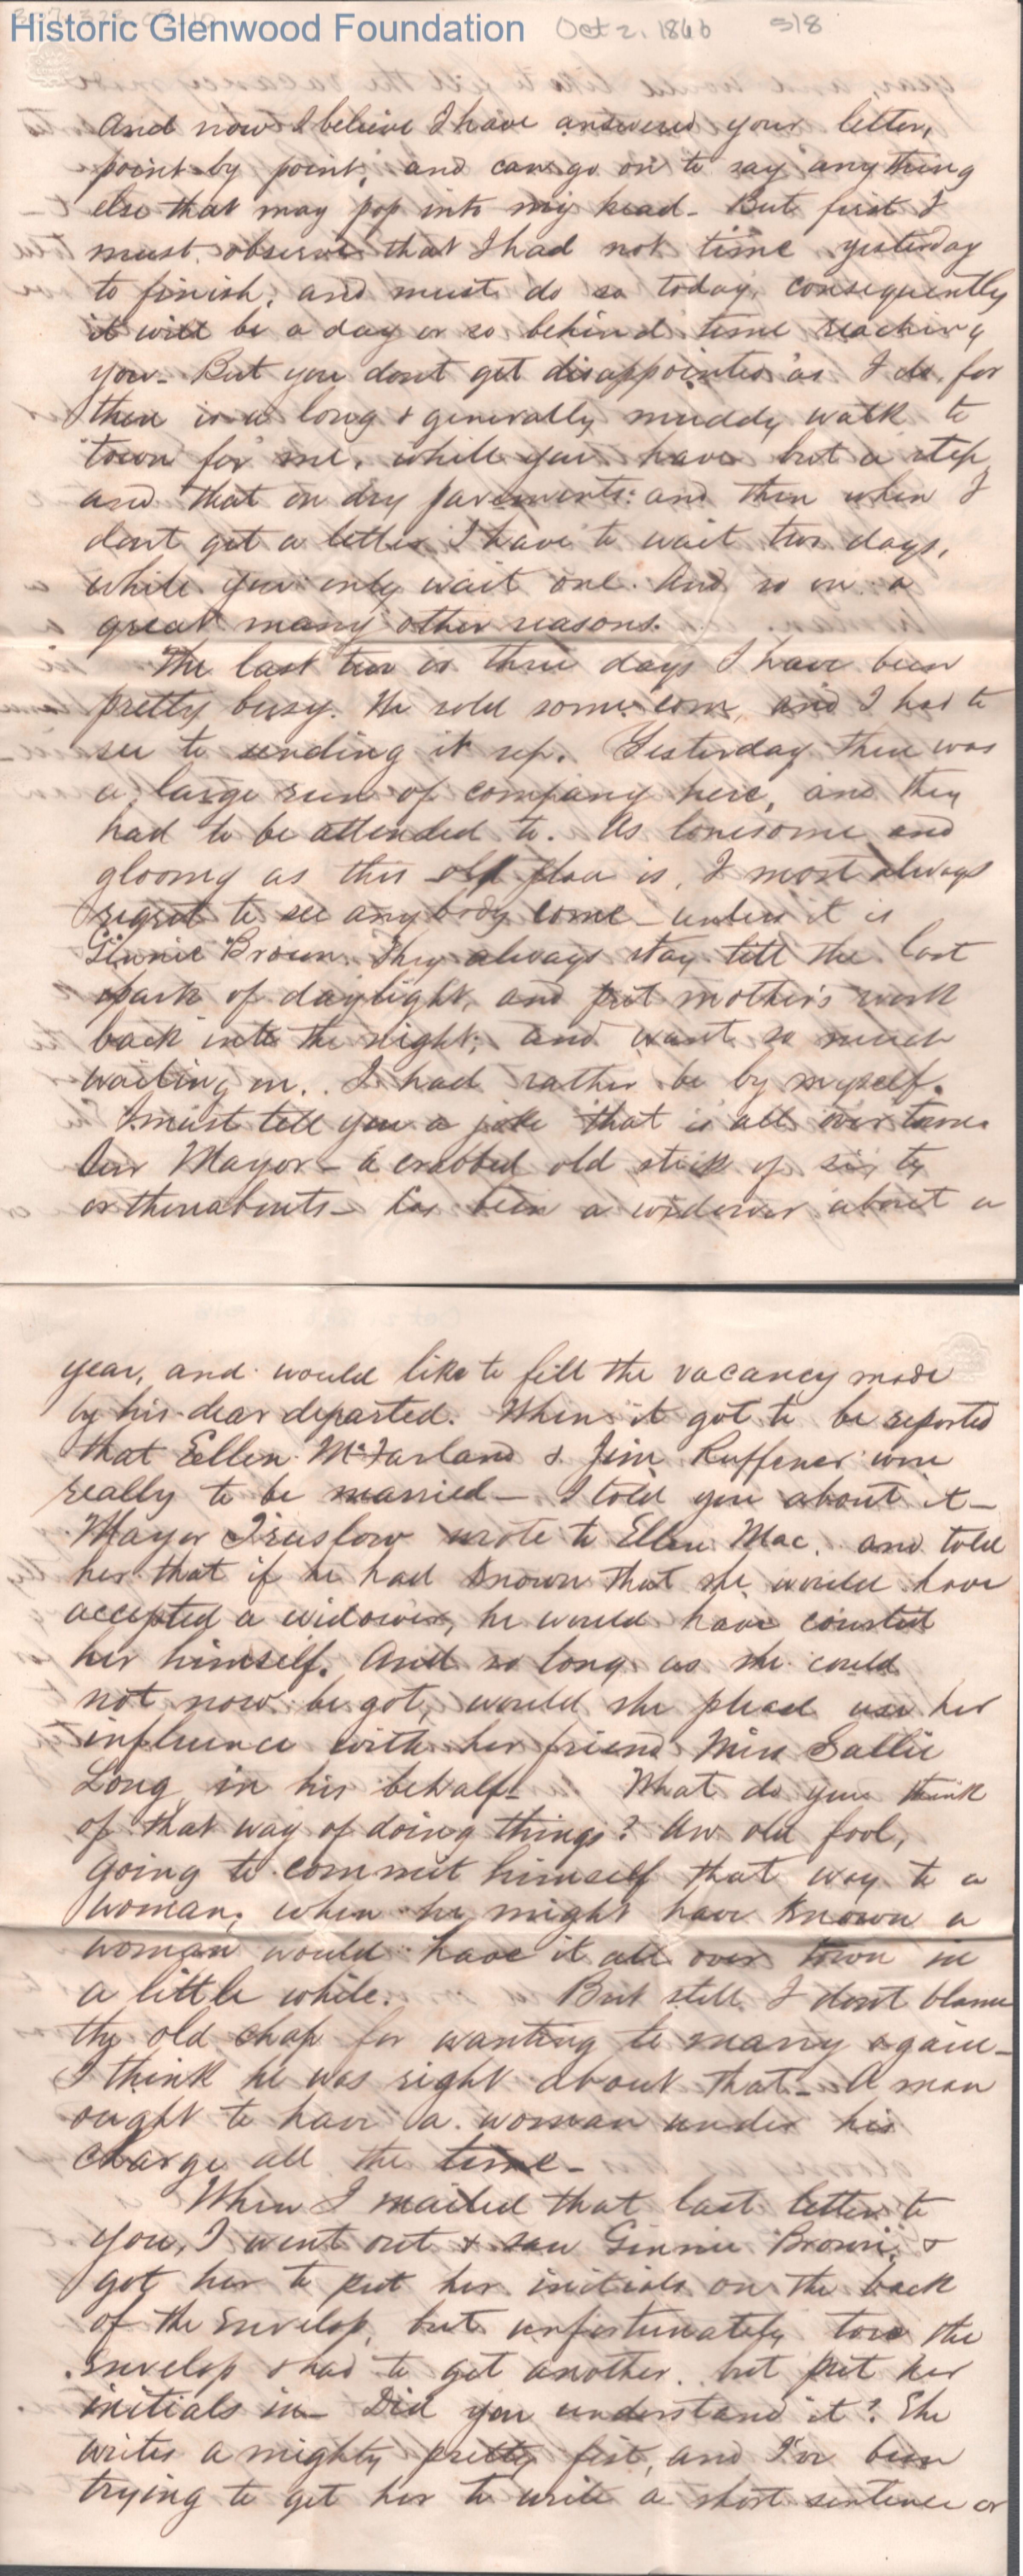 Historic Glenwood Foundation Oct 2, 1866 5/8
And now I believe I have answered your letter,
point by point, and can go on to say anything
else that may pop into my head - But first I
must observe that I had not time yesterday
to finish, and must do so today, consequently
it will be a day or so behind time reaching
you - But you dont get disappointed as I do, for
there is a long & generally muddy walk to
town for me, while you have but a step,
and that on dry pavements: and then when I
dont get a letter I have to wait two days,
while you only wait one. And so on a
great many other reasons.
The last two or three days I have been
pretty busy. We sold some corn, and I had to
see to sending it up. Yesterday there was
a large run of company here, and they
had to be attended to. As lonesome and
gloomy as this old place is, I most always
regret to see anybody come - unless it is
Ginnie Brown. They always stay till the last
spark of daylight, and put mother's work
back into the night; and want so much
waiting on. I had rather be by myself.
I must tell you a joke that is all over town.
Our Mayor - a crabbed old stick of sixty
or thereabouts - has been a widower about a
year, and would like to fill the vacancy made
by his dear departed. When it got to be reported
that Ellen McFarland & Jim Ruffener were
really to be married - I told you about it -
Mayor Truslow wrote to Ellen Mac. and told
her that if he had known that she would have
accepted a widower, he would have courted
her himself. And so long as she could
not now be got, would she please use her
influence with her friend Miss Sallie
Long in his behalf - What do you think
of that way of doing things? An old fool,
going to commit himself that way to a
woman, when he might have known a
woman would have it all over town in
a little while. But still I dont blame
the old chap for wanting to marry again -
I think he was right about that - A man
ought to have a woman under his
charge all the time -
When I mailed that last letter to
you, I went out & saw Ginnie Brown, &
got her to put her initials on the back
of the envelop, but unfortunately tore the
envelop & had to get another, but put her
initials in - Did you understand it? She
writes a mighty pretty fist, and I've been
trying to get her to write a short sentence or